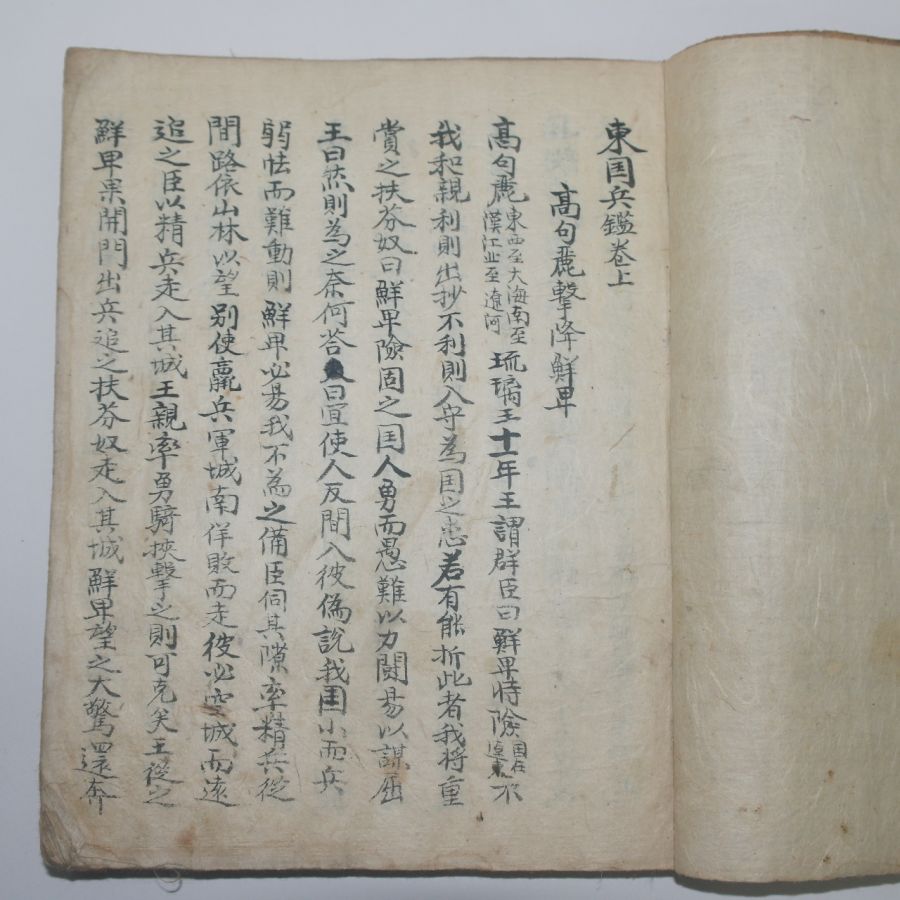 東国兵鑑卷上
高句麗擊降鮮卑
高句麗東西至大海南至漢江北至遼河琉璃王十一年王謂群臣曰鮮卑恃險国在遼東不
我和親利則出抄不利則入守為国之患若有能折此者我将重
賞之扶芬奴曰鮮卑險固之国人勇而愚難以力闘易以謀屈
王曰然則為之奈何答曰宜使人反間入彼偽說我国小而兵
弱怯而難動則鮮卑必易我不為之備臣伺其隙率精兵從
間路依山林以望別使羸兵軍城南佯敗而走彼必空城而遠
追之臣以精兵走入其城王親率勇騎挾擊之則可克矣王從之
鮮卑果開門出兵追之扶芬奴走入其城鮮卑望之大驚還奔